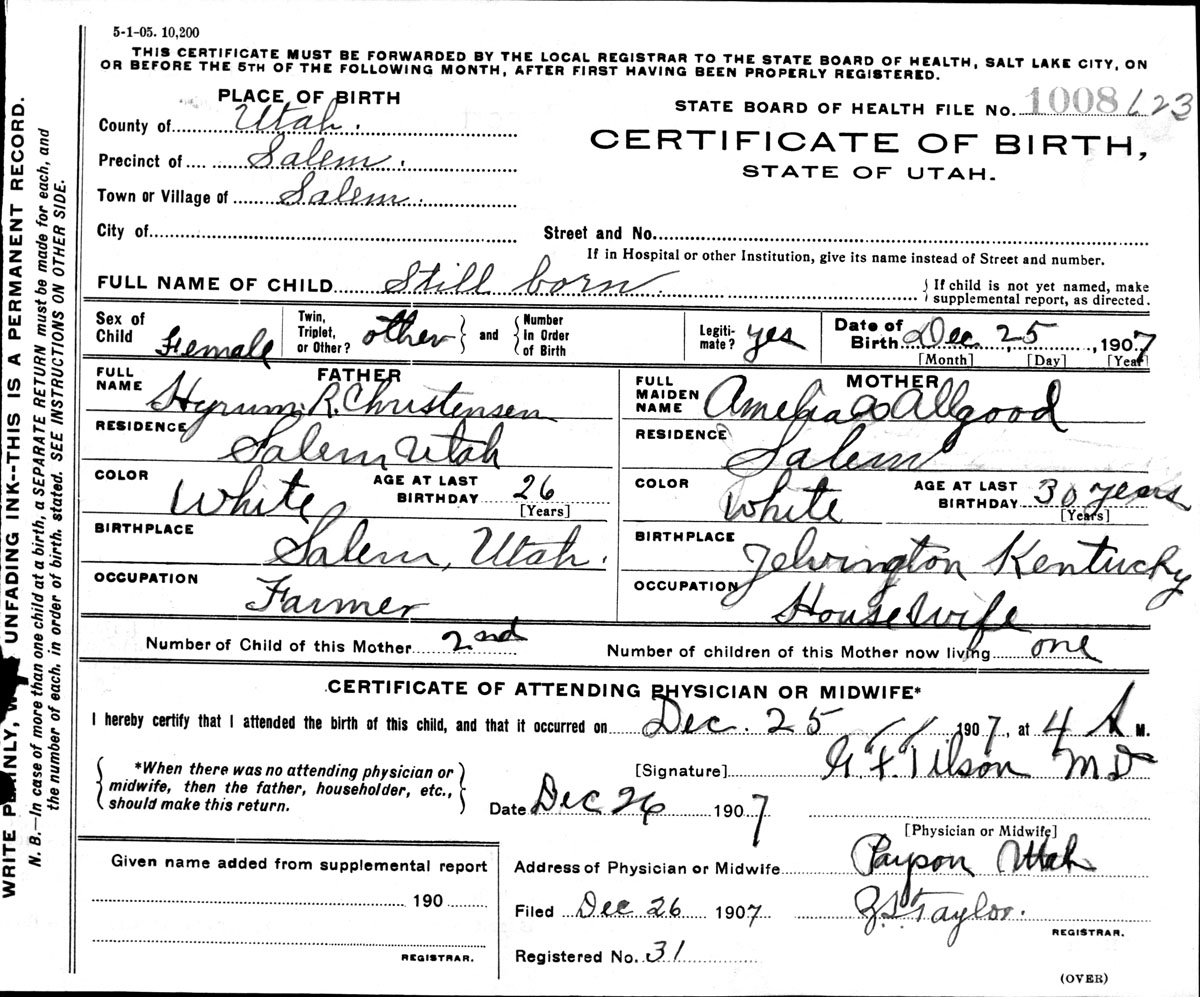 5-1-05. 10,200
THIS CERTIFICATE MUST BE FORWARDED BY THE LOCAL REGISTRAR TO THE STATE BOARD OF HEALTH, SALT LAKE CITY, ON
OR BEFORE THE 5TH OF THE FOLLOWING MONTH, AFTER FIRST HAVING BEEN PROPERLY REGISTERED.
PLACE OF BIRTH
County of Utah.
Precinct of Salem.
Town or Village of Salem.
City of
STATE BOARD OF HEALTH FILE No. 1008 623
CERTIFICATE OF BIRTH,
STATE OF UTAH.
Street and No.
If in Hospital or other Institution, give its name instead of Street and number.
FULL NAME OF CHILD Still born.
If child is not yet named, make
supplemental report, as directed.
Sex of
Child Female
Twin,
Triplet,
or Other? other
and
Number
In Order
of Birth
Legiti-
mate? yes
Date of
Birth Dec 25, 1907
[Month] [Day] [Year]
FATHER
FULL
NAME Hyrum R. Christensen
RESIDENCE Salem Utah
COLOR White
AGE AT LAST
BIRTHDAY 26
[Years]
BIRTHPLACE Salem, Utah.
OCCUPATION Farmer
MOTHER
FULL
MAIDEN
NAME Amelia Allgood
RESIDENCE Salem
COLOR White
AGE AT LAST
BIRTHDAY 30 years
[Years]
BIRTHPLACE Kentucky
OCCUPATION Housewife
Number of Child of this Mother 2nd
Number of children of this Mother now living one
CERTIFICATE OF ATTENDING PHYSICIAN OR MIDWIFE*
I hereby certify that I attended the birth of this child, and that it occurred on Dec. 25 1907, at 4 A M.
*When there was no attending physician or
midwife, then the father, householder, etc.,
should make this return.
[Signature] G. F. Tilson MD
Date Dec 26 1907
[Physician or Midwife]
Address of Physician or Midwife Payson Utah
Filed Dec 26 1907 Taylor.
REGISTRAR.
Registered No. 31
(OVER)
Given name added from supplemental report
190
REGISTRAR.
WRITE PLAINLY, UNFADING INK--THIS IS A PERMANENT RECORD.
N. B.—In case of more than one child at a birth, a SEPARATE RETURN must be made for each, and
the number of each, in order of birth, stated. SEE INSTRUCTIONS ON OTHER SIDE.